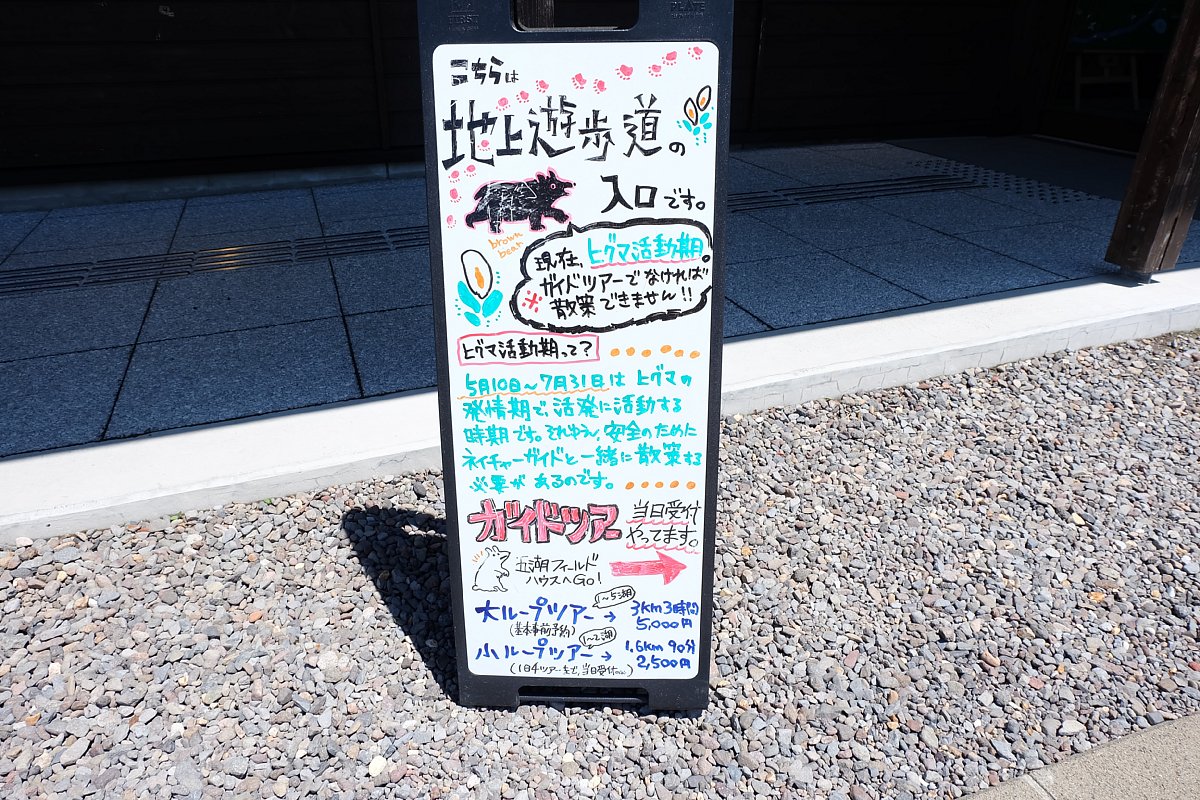 こちらは
地上遊歩道の
入口です。
brown
bear
現在、ヒグマ活動期。
ガイドツアーでなければ
※散策できません!!
ヒグマ活動期って?
5月10日〜7月31日はヒグマの
発情期で、活発に活動する
時期です。それゆえ、安全のために
ネイチャーガイドと一緒に散策する
必要があるのです。
ガイドツアー
当日受付
やってます。
五湖フィールド
ハウスへGO!
1〜5湖
大ループツアー→ 3km 3時間
(基本事前予約) 5,000円
1〜2湖
小ループツアー→ 1.6km 90分
2,500円
(1日4ツアーまで、当日受付